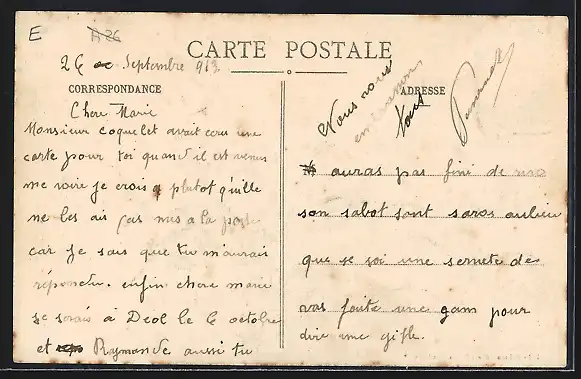 E
A 26
26 Septembre 913
CARTE POSTALE
CORRESPONDANCE
ADRESSE
Chere Marie
Monsieur coquelet avait ecru une
carte pour toi quand il est venus
me voire je crois q plutot qu'ille
ne les ais pas mis a la poste
car je sais que tu m'aurais
répondu. enfin chere marie
je serais à Deol le 6 octobre
et Raymonde aussi tu
auras pas fini de nous
son sabot sont saros aulieu
que se soi une semete de
vas faute une gam pour
dire une gifle.
Nous nous
Nous